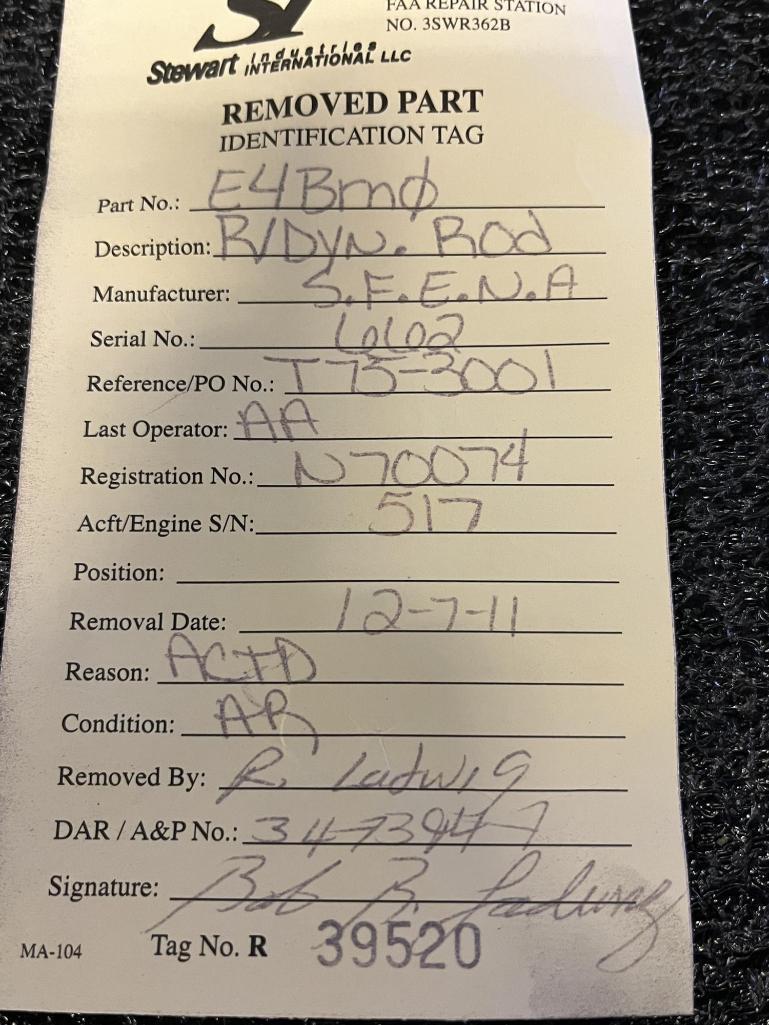 FAA REPAIR STATION
NO. 3SWR362B
Stewart Industries
INTERNATIONAL LLC
REMOVED PART
IDENTIFICATION TAG
Part No.: E4Bmϕ
Description: R/DYN. ROd
Manufacturer: S.F.E.N.A
Serial No.: 6602
Reference/PO No.: T75-3001
Last Operator: AA
Registration No.: N70074
Acft/Engine S/N: 517
Position:
Removal Date: 12-7-11
Reason:
Condition: AR
Removed By: R. Ladwig
DAR / A&P No.:
Signature: Bob R. Ladwig
MA-104 Tag No. R 39520